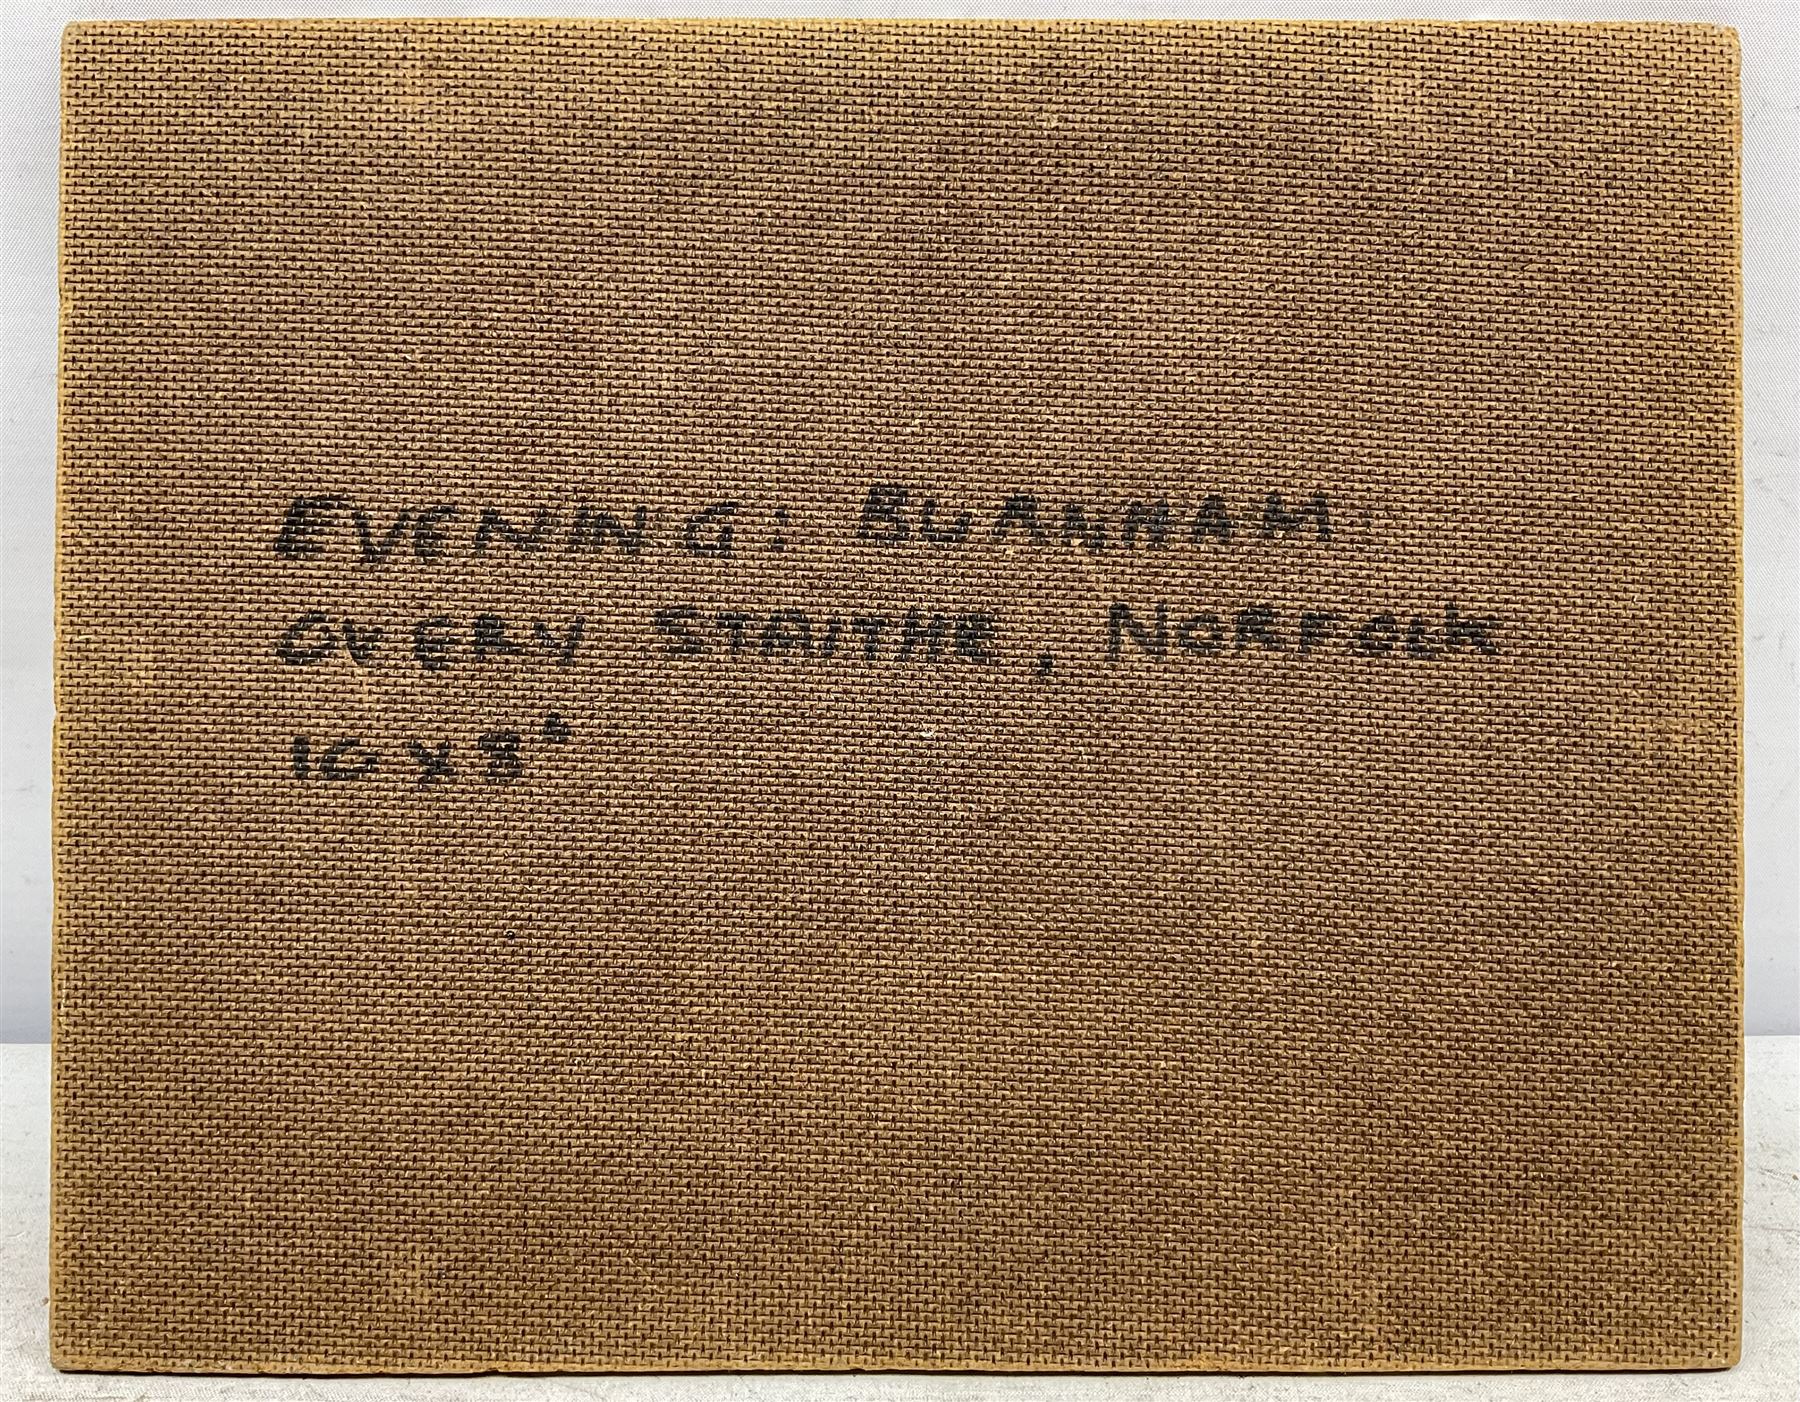 EVENING: BURNHAM
OVERY STAITHE, NORFOLK
10 x 8"